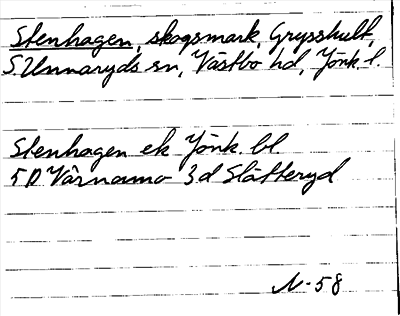 Stenhagen, skogsmark, Grysshult,
S. Unnaryds sn, Västbo hd, Jönk. l.
Stenhagen ek Jönk. bl.
5 D Värnamo 3 d Slätteryd
N-58